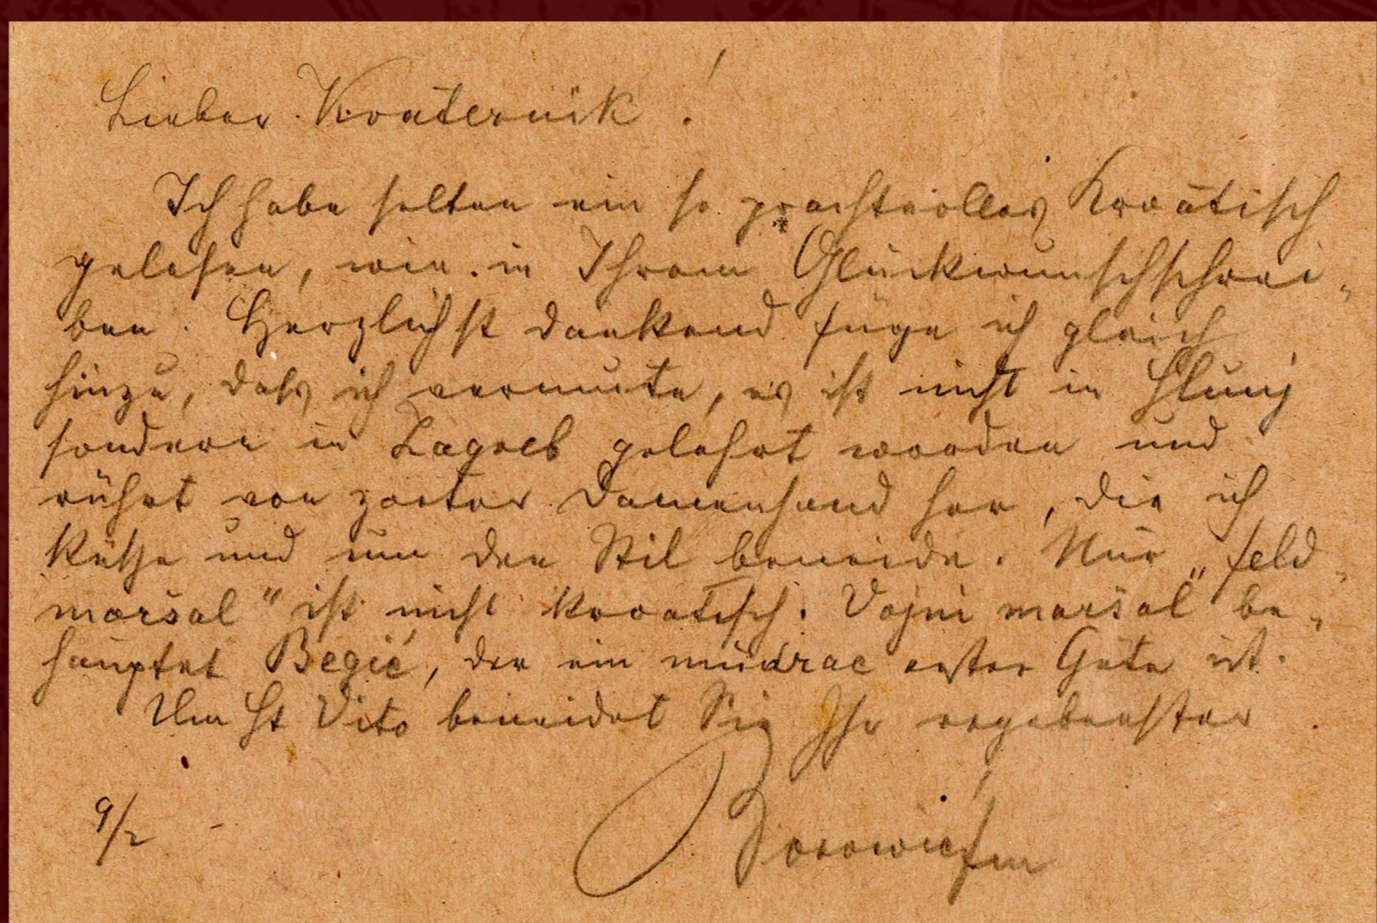 Lieber Kvaternik!
Ich habe selten ein so prachtvolles Kroatisch
gelesen, wie in Ihrem Glückwunschschrei„
ben. Herzlichst dankend füge ich gleich
hinzu, daß ich vermute, es ist nicht in Slunj
sondern in Zagreb gelehrt worden und
rührt von zarter Damenhand her, die ich
küße und um den Stil beneide. Nur „feld„
maršal" ist nicht kroatisch. Vojni maršal be„
hauptet Begić, der ein mudrac erster Güte ist.
Um St Vito beneidet Sie Ihr ergebenster
9/2